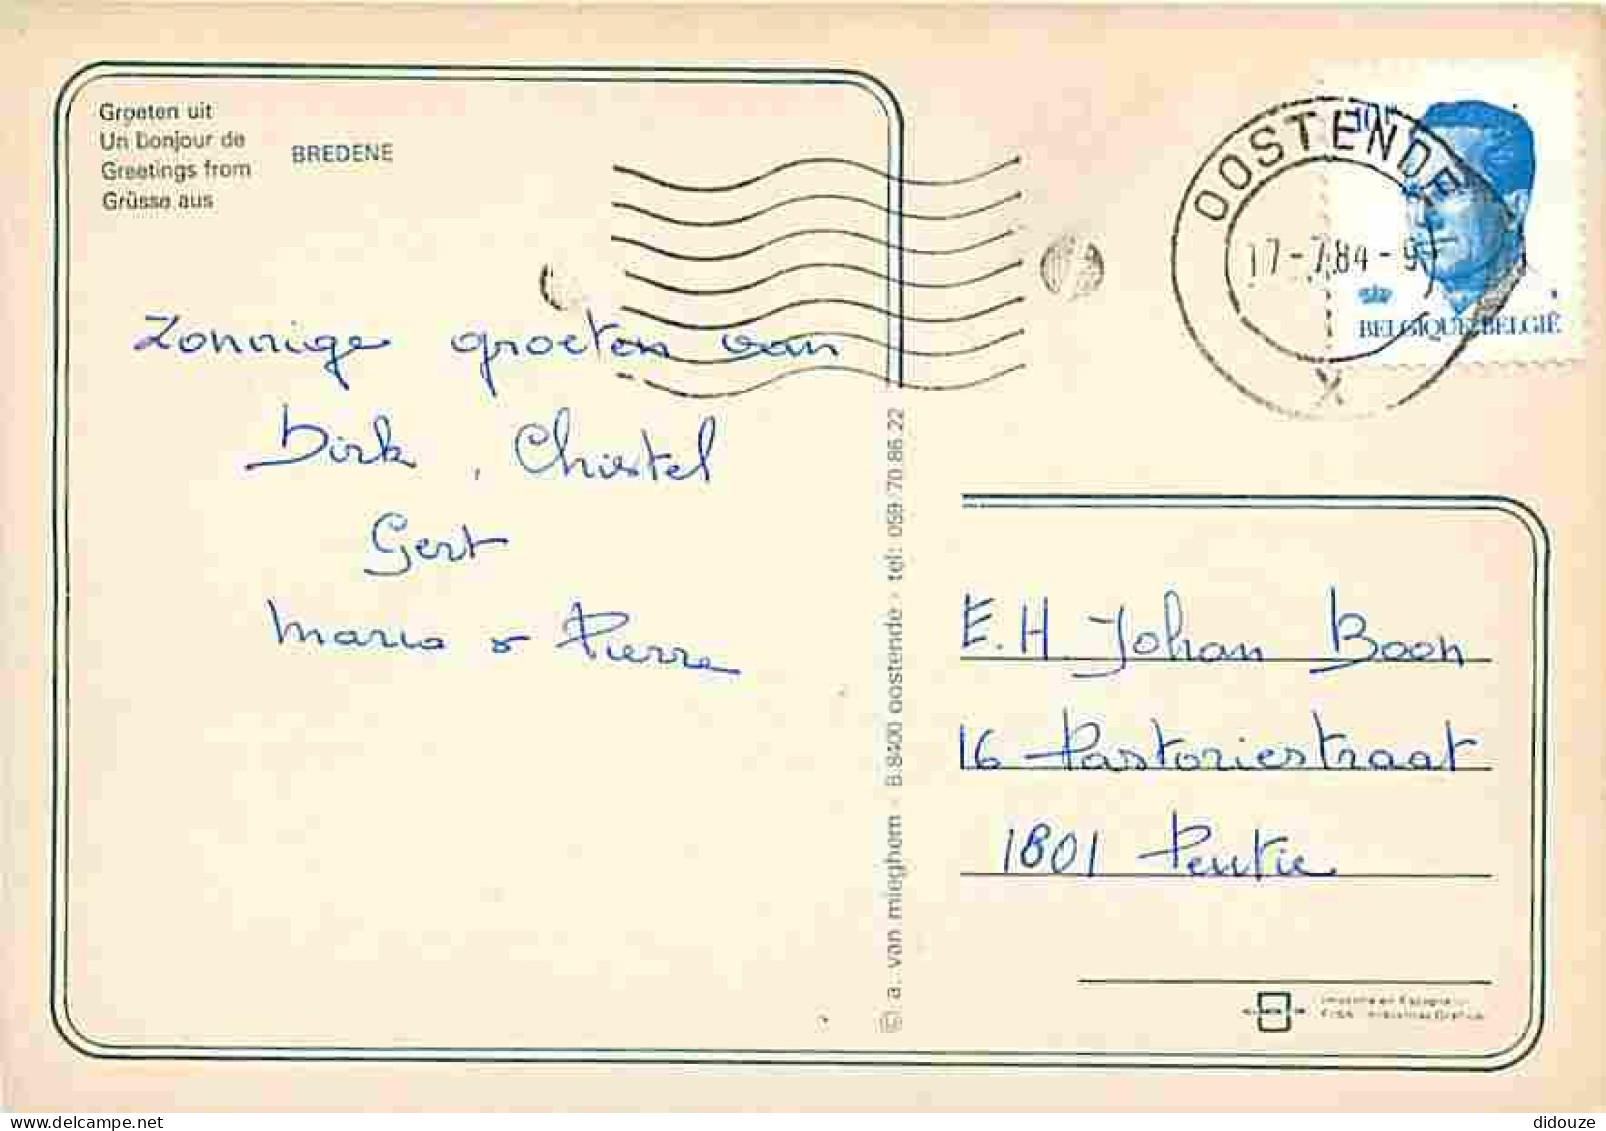 Groeten uit
Un bonjour de
Greetings from
Grüsse aus
BREDENE
Zonnige groeten van
Dirk, Christel
Gert
Maria & Pierre
OOSTENDE
17-7.84-9
X
10F
BELGIQUE-BELGIË
a. van mieghem - B.8400 oostende - tel: 059 70.86.22
E.H. Johan Boon
16 Pastoriestraat
1801 Peutie
didouze